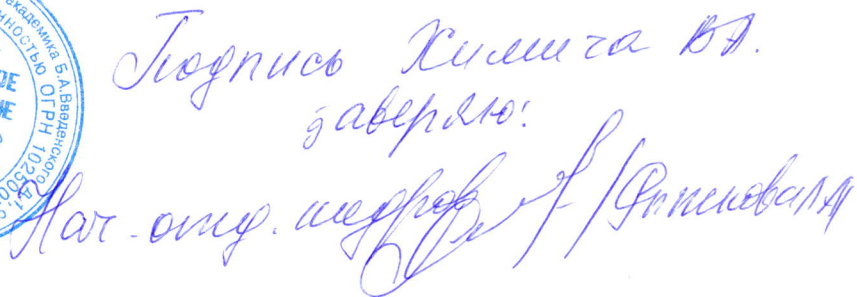 академика Б.А.Введенского
ностью ОГРН 102500
Подпись Химича В.А.
заверяю:
Нач. отд. кадров